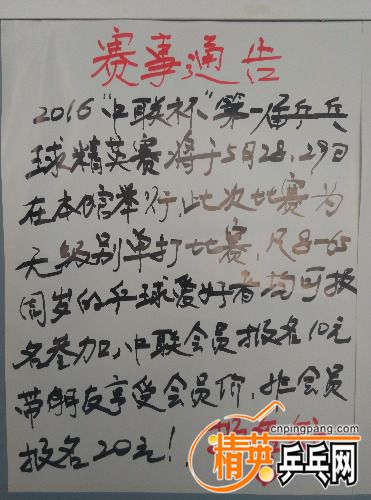 赛事通告
2016“中联杯”第一届乒乓
球精英赛将于5月28、29日
在本馆举行,此次比赛为
无级别单打比赛,凡8-65
周岁的乒球爱好者均可报
名参加,中联会员报名10元
带朋友享受会员价,非会员
报名20元!
cnpingpang.com
精英乒乓网